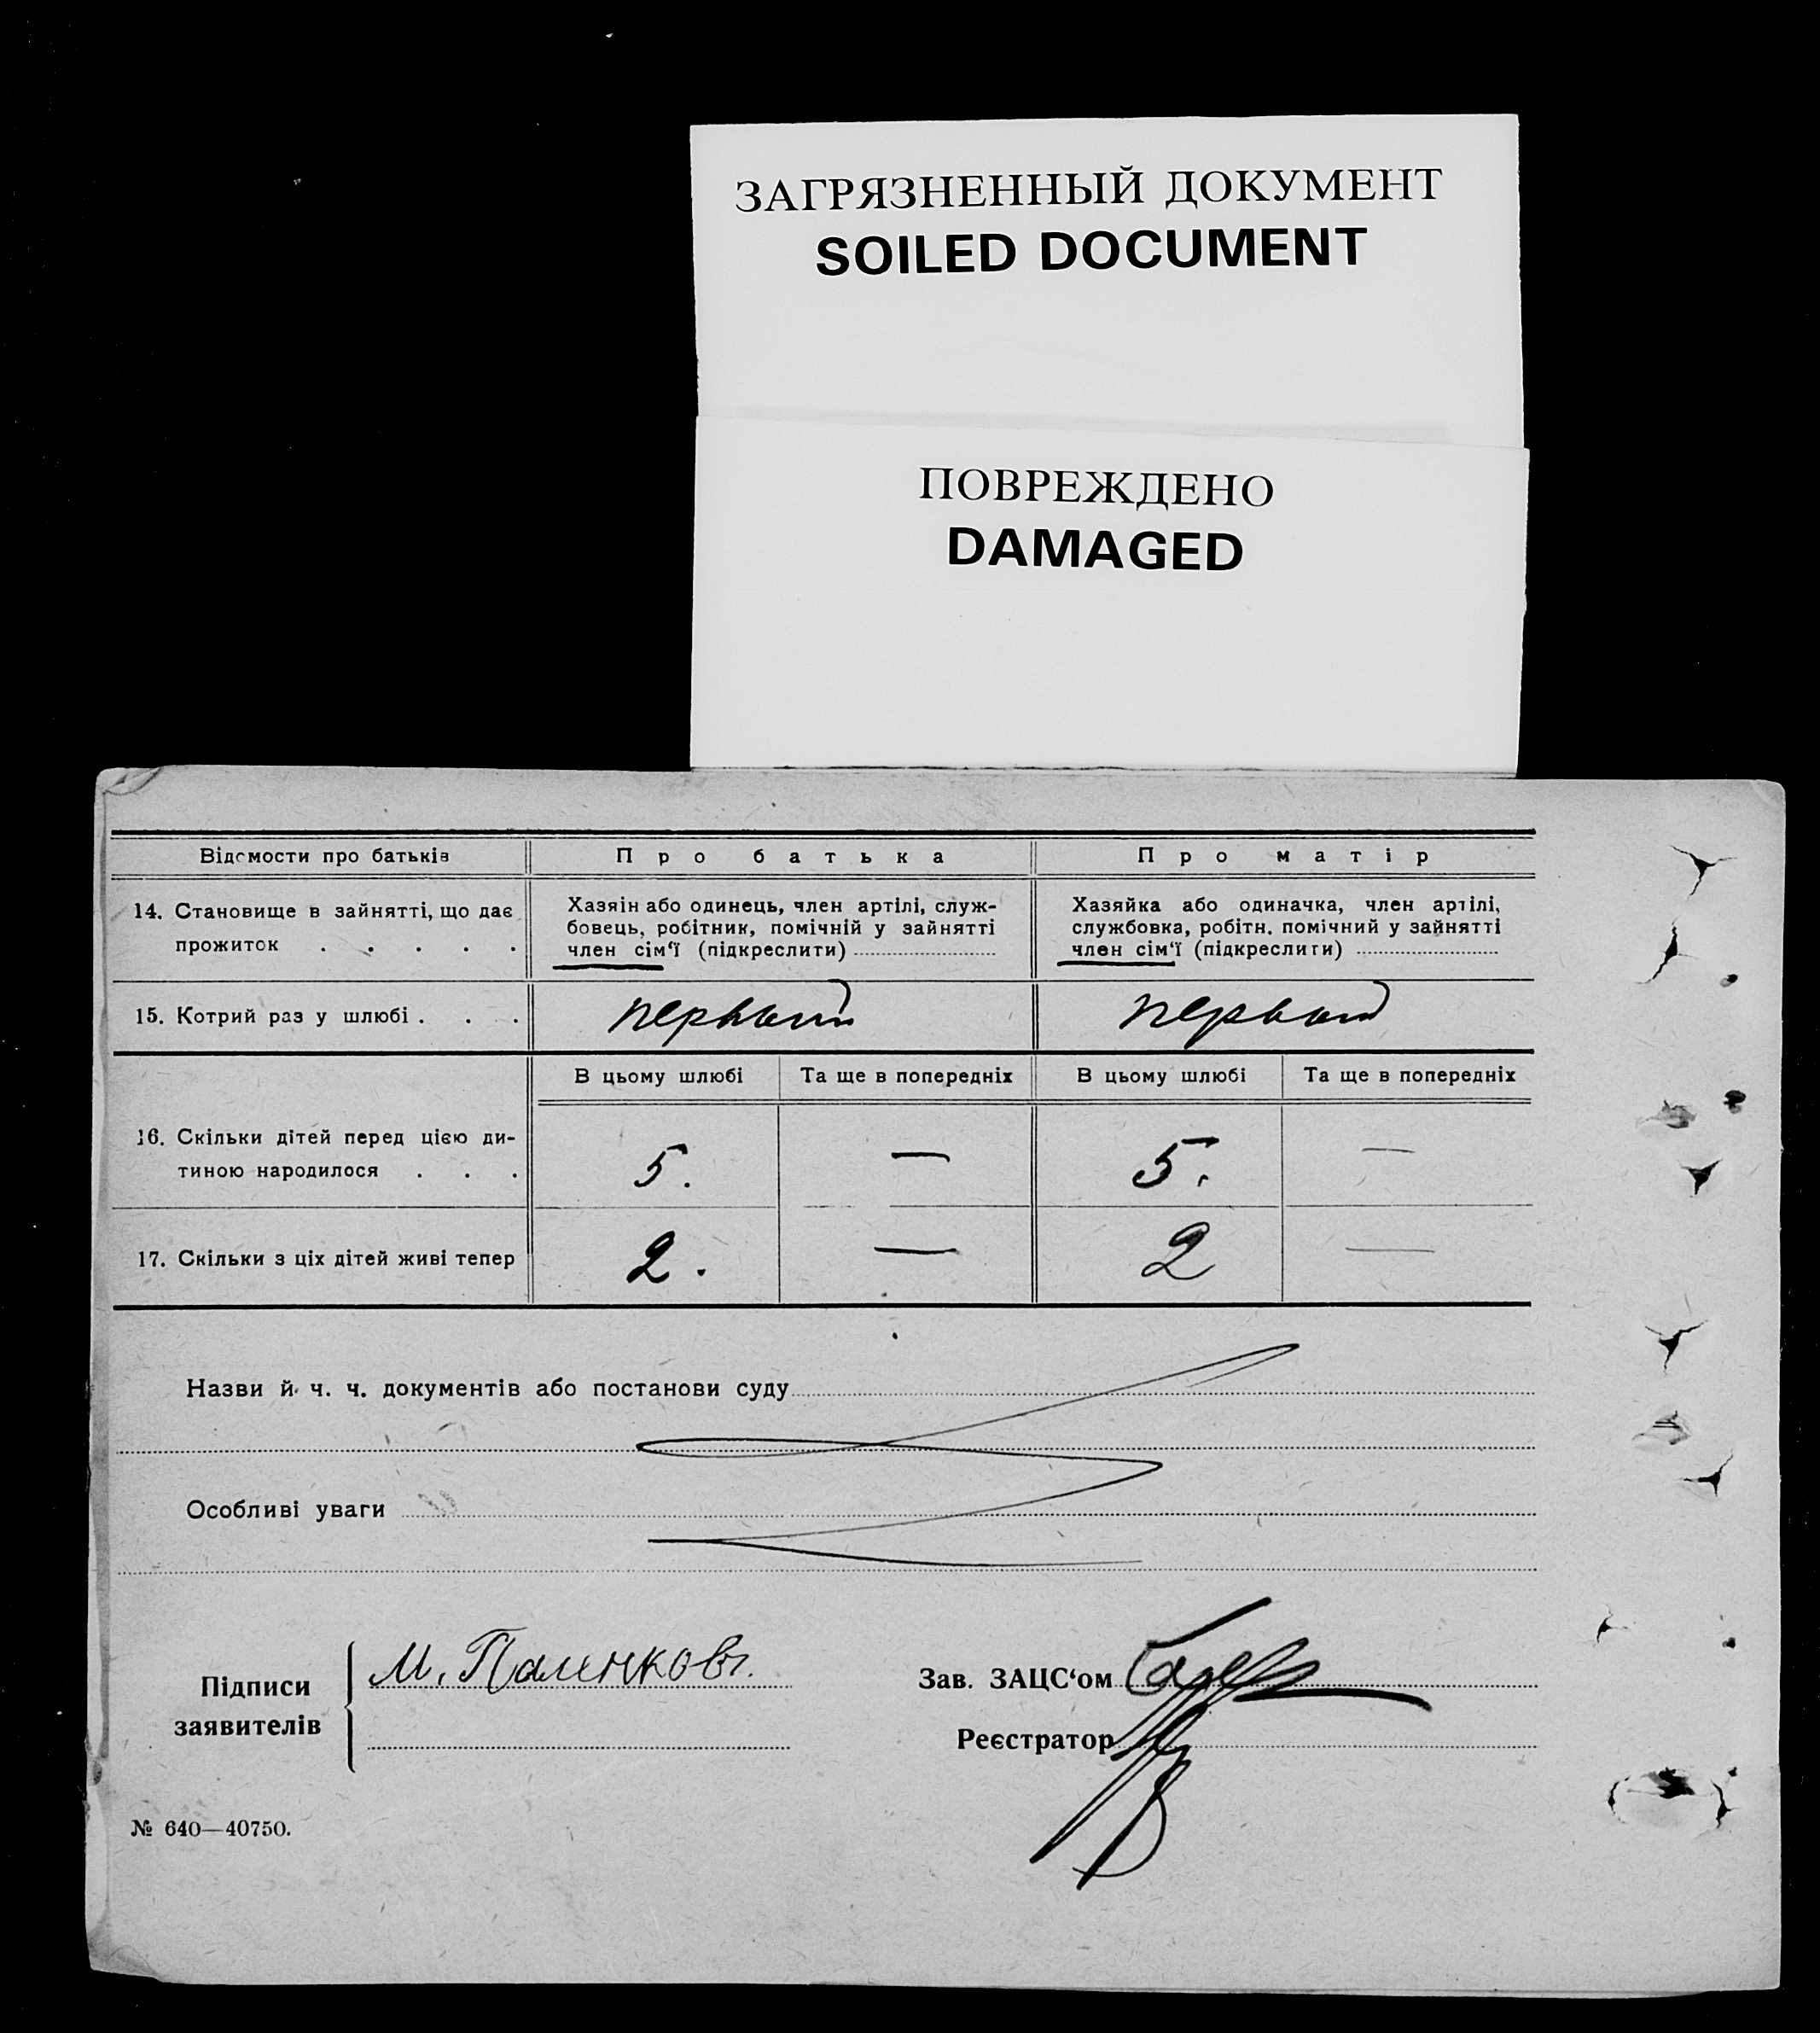 ЗАГРЯЗНЕННЫЙ ДОКУМЕНТ
SOILED DOCUMENT
ПОВРЕЖДЕНО
DAMAGED
Відомости про батьків
Про батька
Про матір
14. Становище в зайнятті, що дає
прожиток . . . . .
Хазяін або одинець, член артілі, служ-
бовець, робітник, помічній у зайнятті
член сім‘ї (підкреслити)
Хазяйка або одиначка, член артілі,
службовка, робітн. помічний у зайнятті
член сім‘ї (підкреслити)
15. Котрий раз у шлюбі . . .
первый
первый
В цьому шлюбі
Та ще в попередніх
В цьому шлюбі
Та ще в попередніх
16. Скільки дітей перед цією ди-
тиною народилося . . .
5.
—
5.
—
17. Скільки з ціх дітей живі тепер
2.
—
2
—
Назви й ч. ч. документів або постанови суду
Особливі уваги
Підписи
заявителів
М.
Зав. ЗАЦС‘ом
Реєстратор
№ 640—40750.